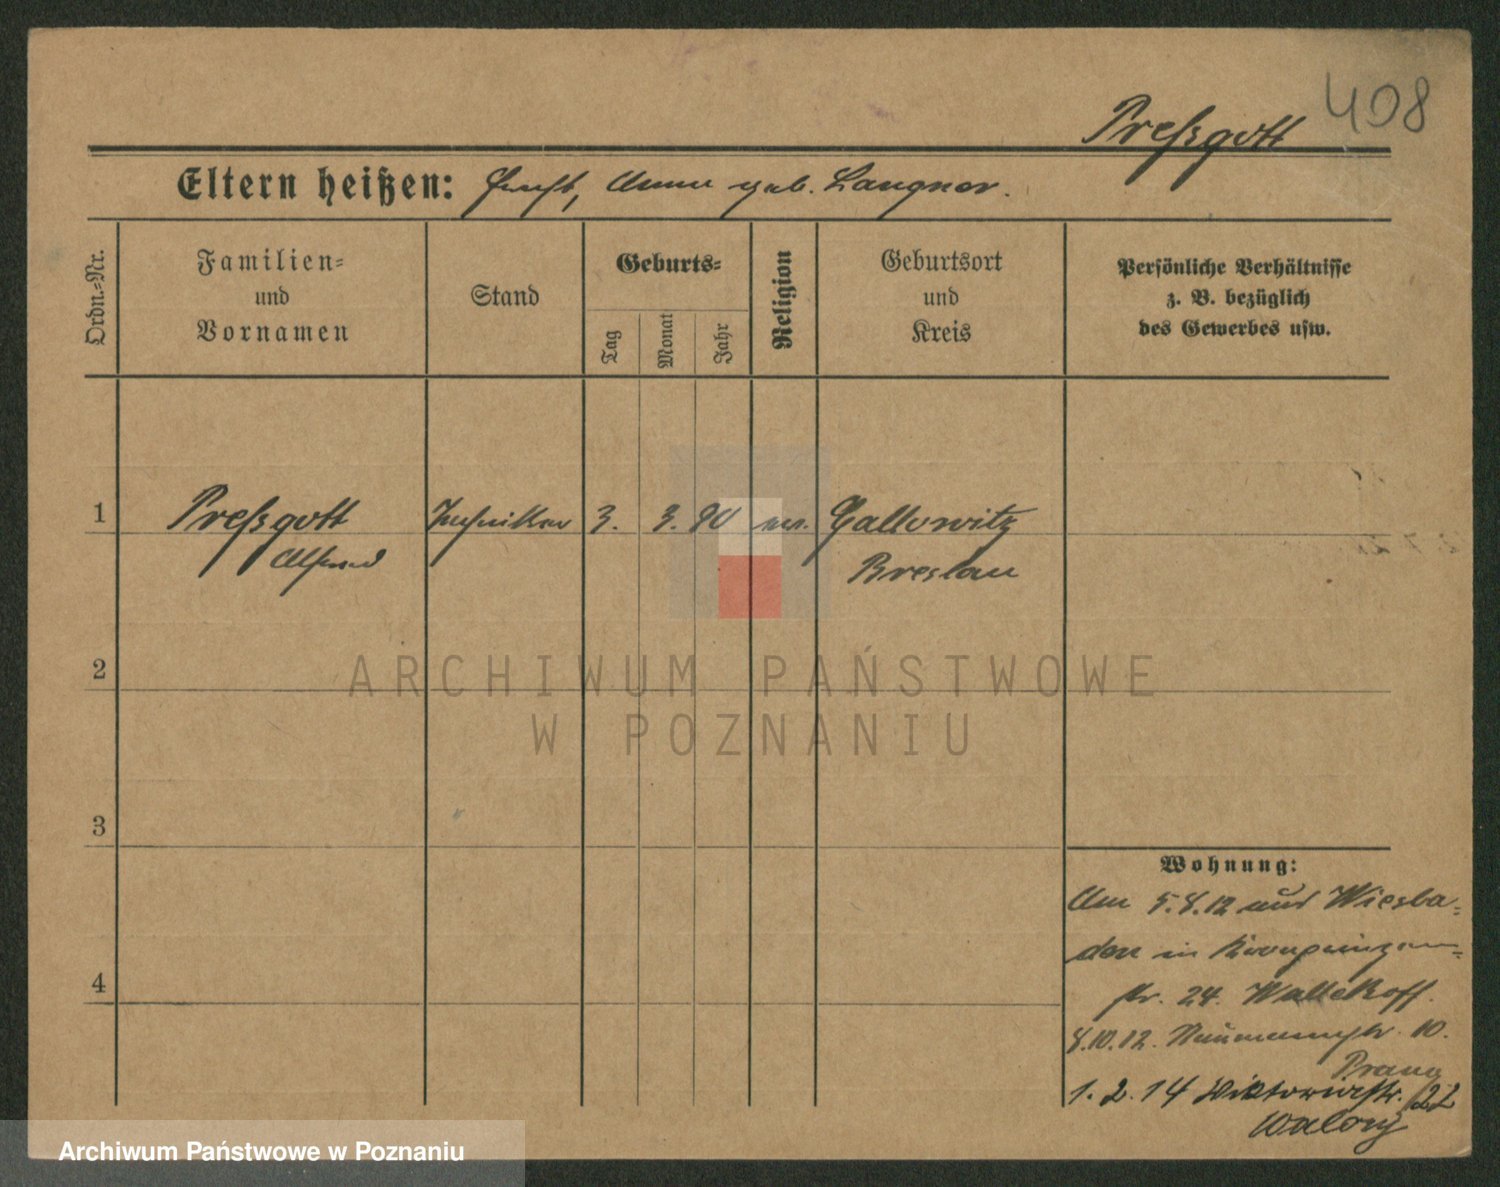 408
Preßgott
Eltern heißen: Anna geb. Langner.
Ordn.-Nr.
Familien-
und
Vornamen
Stand
Geburts-
Tag
Monat
Jahr
Religion
Geburtsort
und
Kreis
Persönliche Verhältnisse
z. B. bezüglich
des Gewerbes usw.
1 Preßgott Techniker 3. 3. 90 ev. Gallowitz
Alfred Breslau
2
3
4
Wohnung:
Am 5.8.12 aus Wiesba-
den in Kronprinzen-
str. 24. Wallekoff.
8.10.12. Naumannstr. 10.
Prang
1.2.14 Viktoriastr. 22
Walory
ARCHIWUM PAŃSTWOWE
W POZNANIU
Archiwum Państwowe w Poznaniu